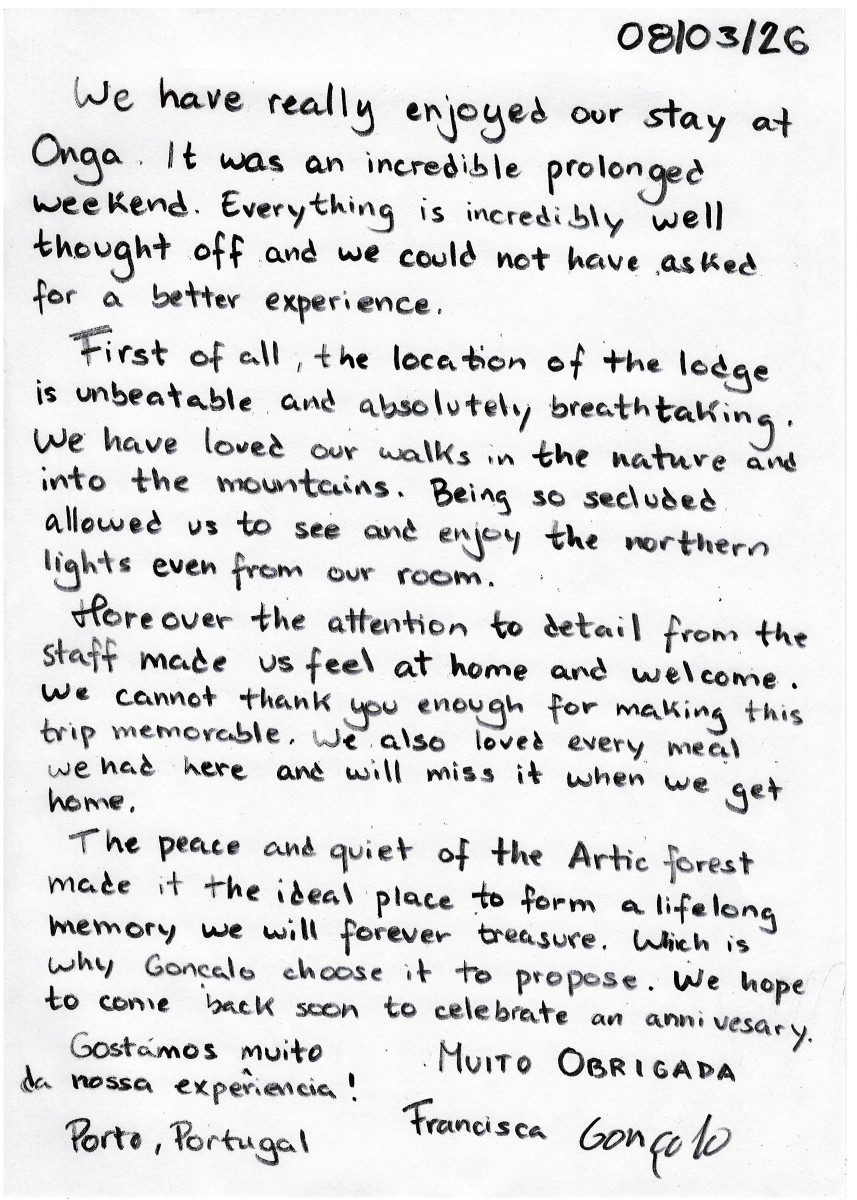 08/03/26
We have really enjoyed our stay at
Onga. It was an incredible prolonged
weekend. Everything is incredibly well
thought off and we could not have asked
for a better experience.
First of all, the location of the lodge
is unbeatable and absolutely breathtaking.
We have loved our walks in the nature and
into the mountains. Being so secluded
allowed us to see and enjoy the northern
lights even from our room.
Moreover the attention to detail from the
staff made us feel at home and welcome.
We cannot thank you enough for making this
trip memorable. We also loved every meal
we had here and will miss it when we get
home.
The peace and quiet of the Artic forest
made it the ideal place to form a lifelong
memory we will forever treasure. Which is
why Goncalo choose it to propose. We hope
to come back soon to celebrate an annivesary.
Gostámos muito
da nossa experîencia!
MUITO OBRIGADA
Porto, Portugal
Francisca Gonçalo